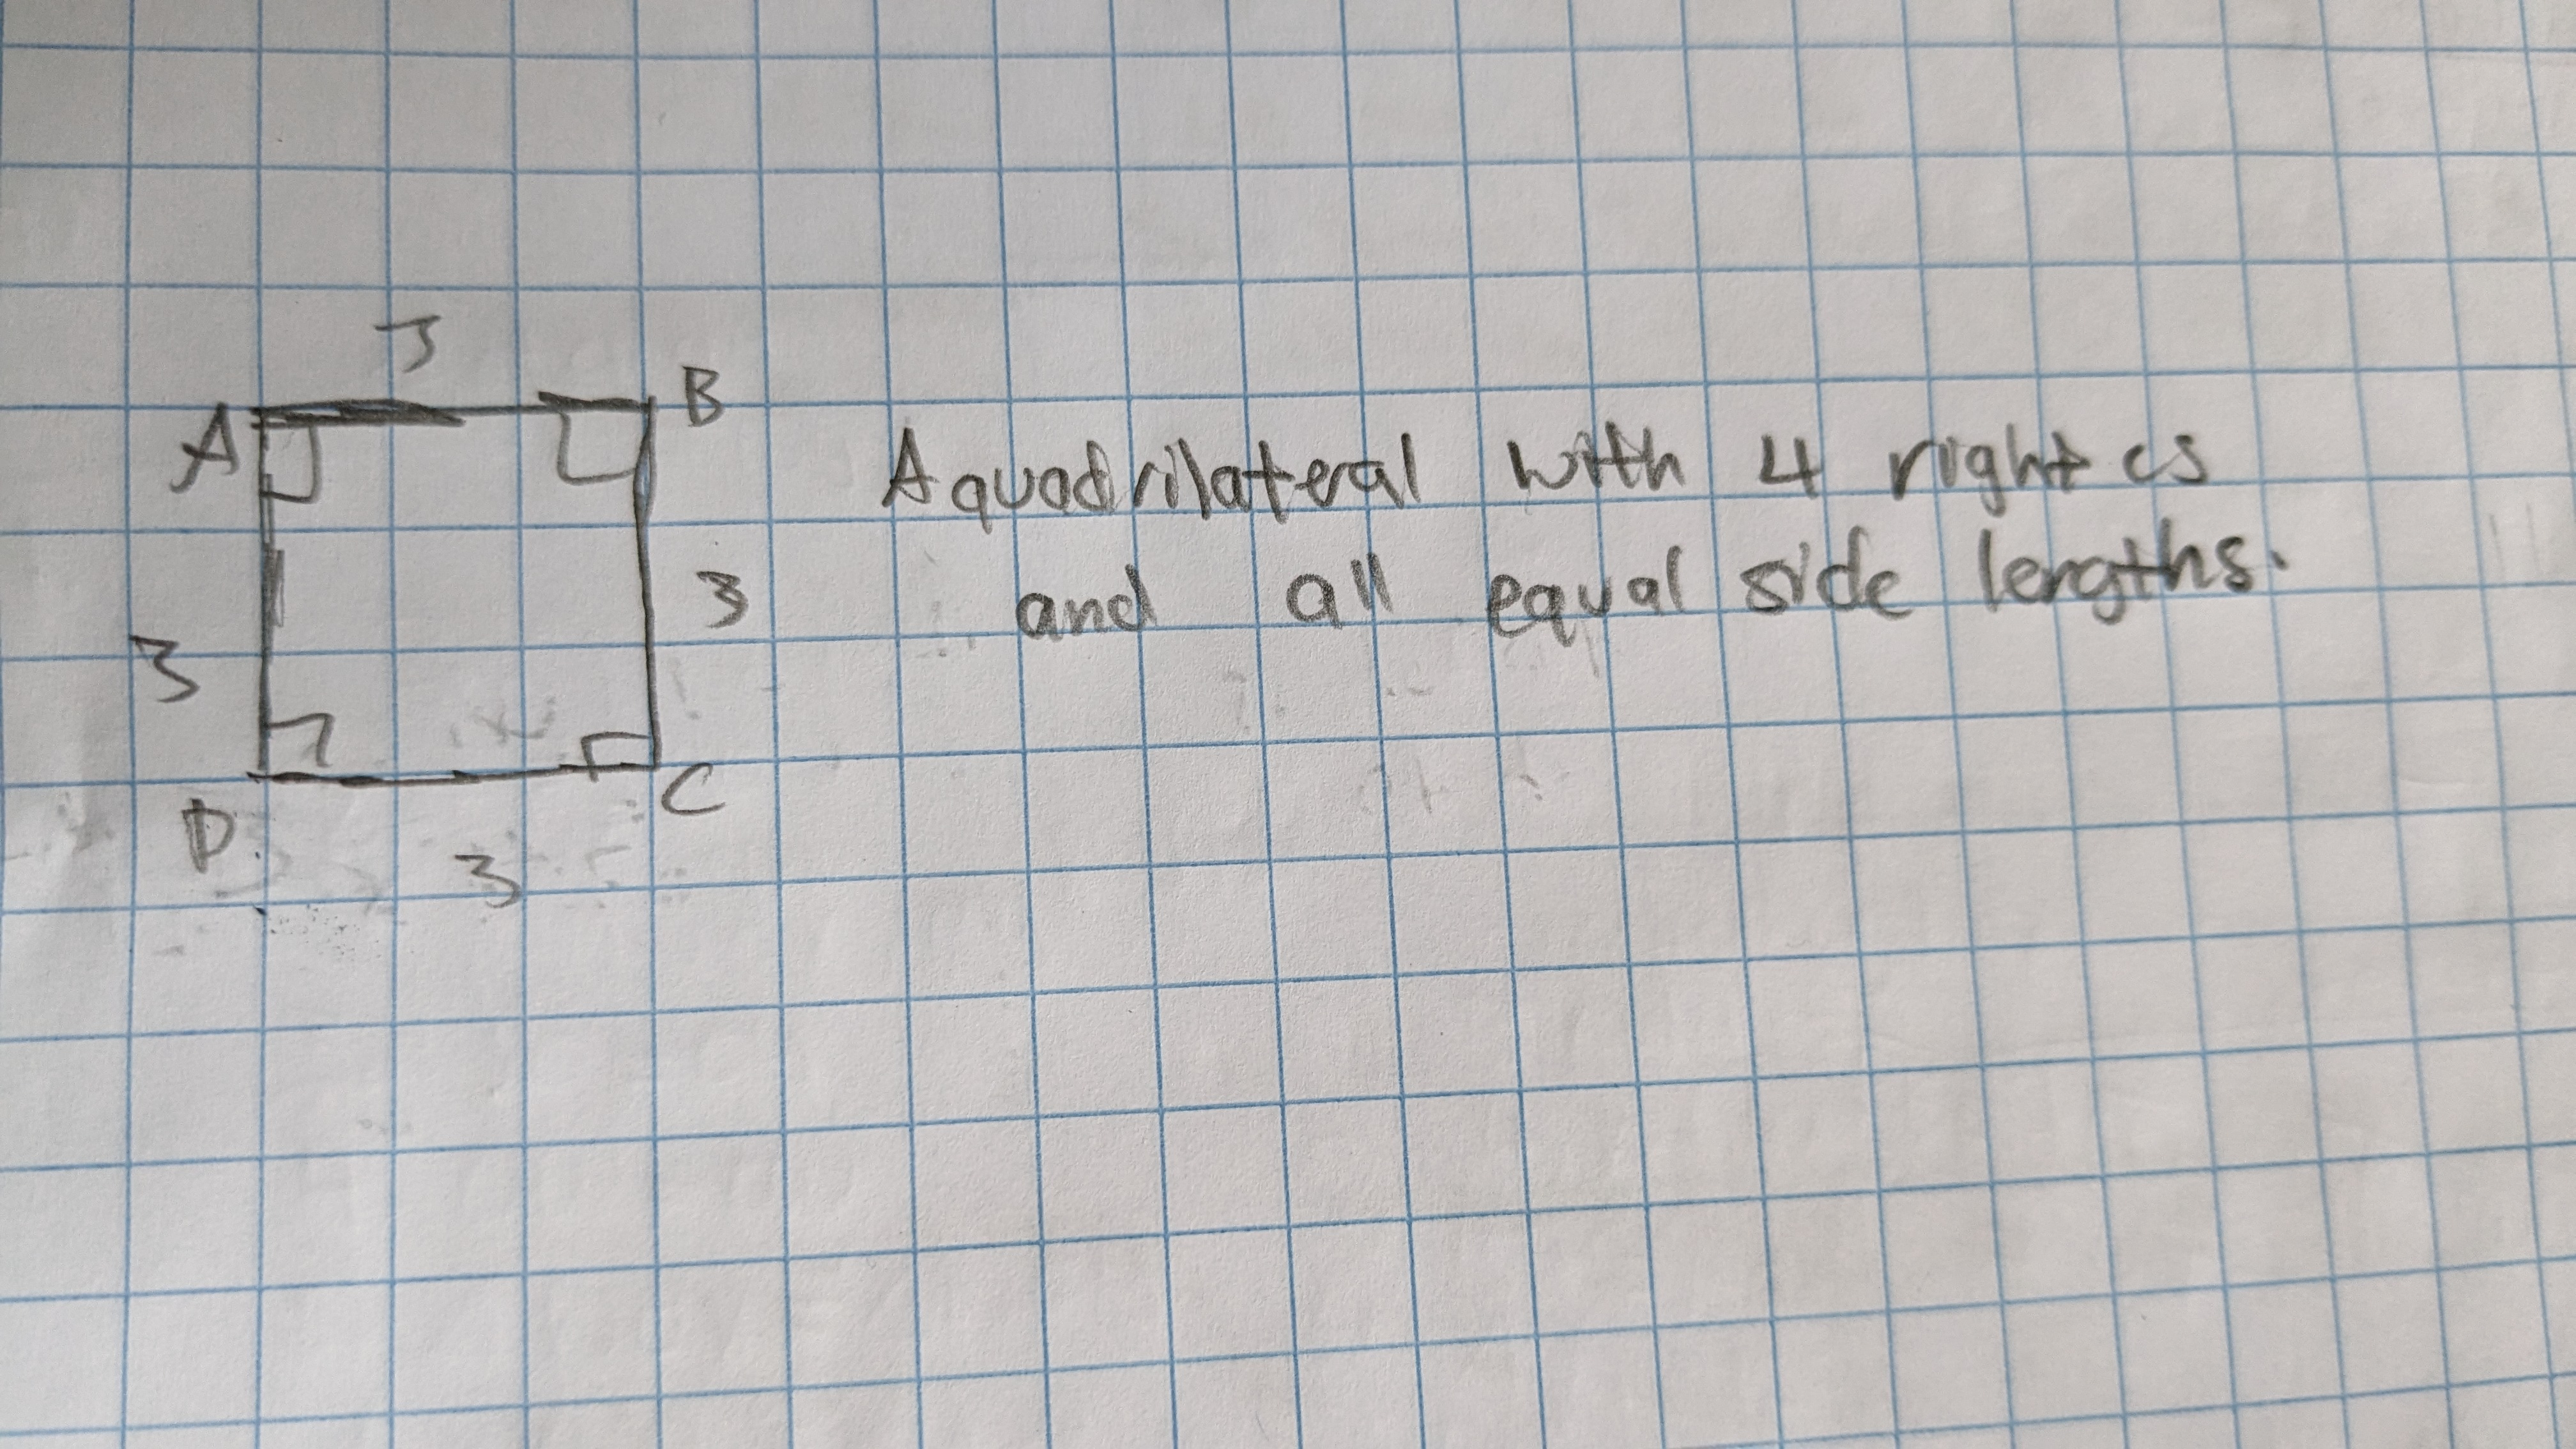 3
A
B
A quadrilateral with 4 right cs
3
and all equal side lengths.
3
D
C
3